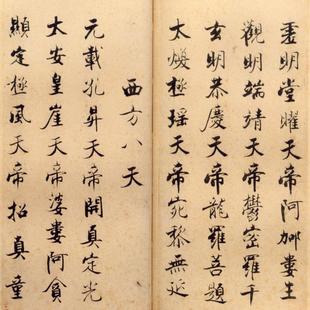 虛明堂曜天帝阿那婁生
觀明端靖天帝鬱密羅千
玄明恭慶天帝龍羅菩提
太煥極瑤天帝宛黎無延
西方八天
元載孔昇天帝開真定光
太安皇崖天帝婆婁阿貪
顯定極風天帝招真童